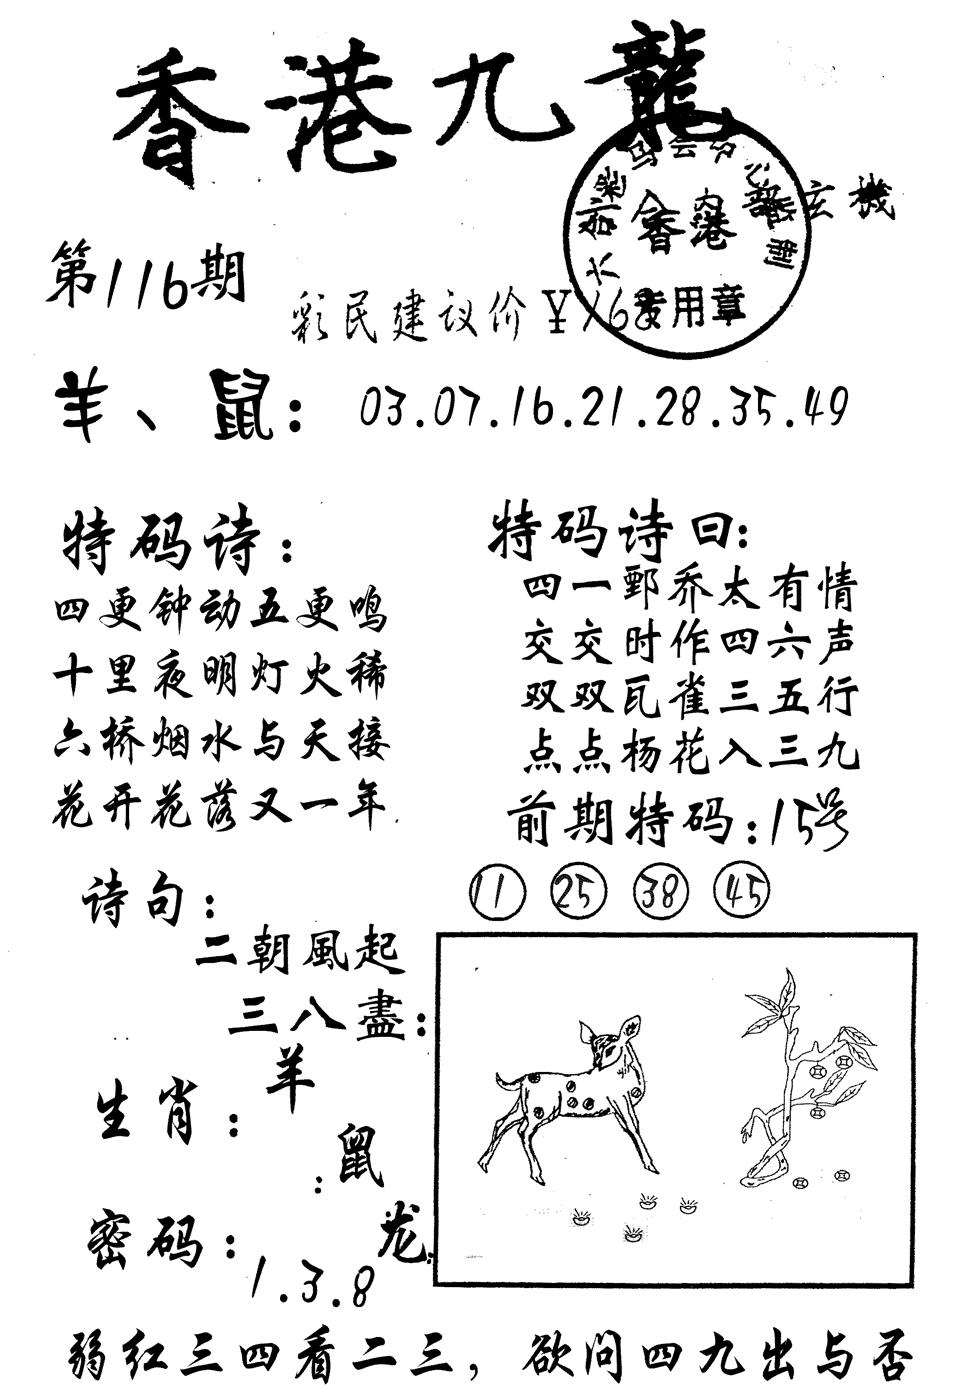 香港九龍
玄機
香港
专用章
第116期
彩民建议价¥168
羊、鼠：03.07.16.21.28.35.49
特码诗：
四更钟动五更鸣
十里夜明灯火稀
六桥烟水与天接
花开花落又一年
特码诗曰：
四一鄄乔太有情
交交时作四六声
双双瓦雀三五行
点点杨花入三九
前期特码：15号
11 25 38 45
诗句：
二朝風起
三八盡：
生肖：
羊
鼠
龙
密码：
1.3.8
弱红三四看二三，欲问四九出与否